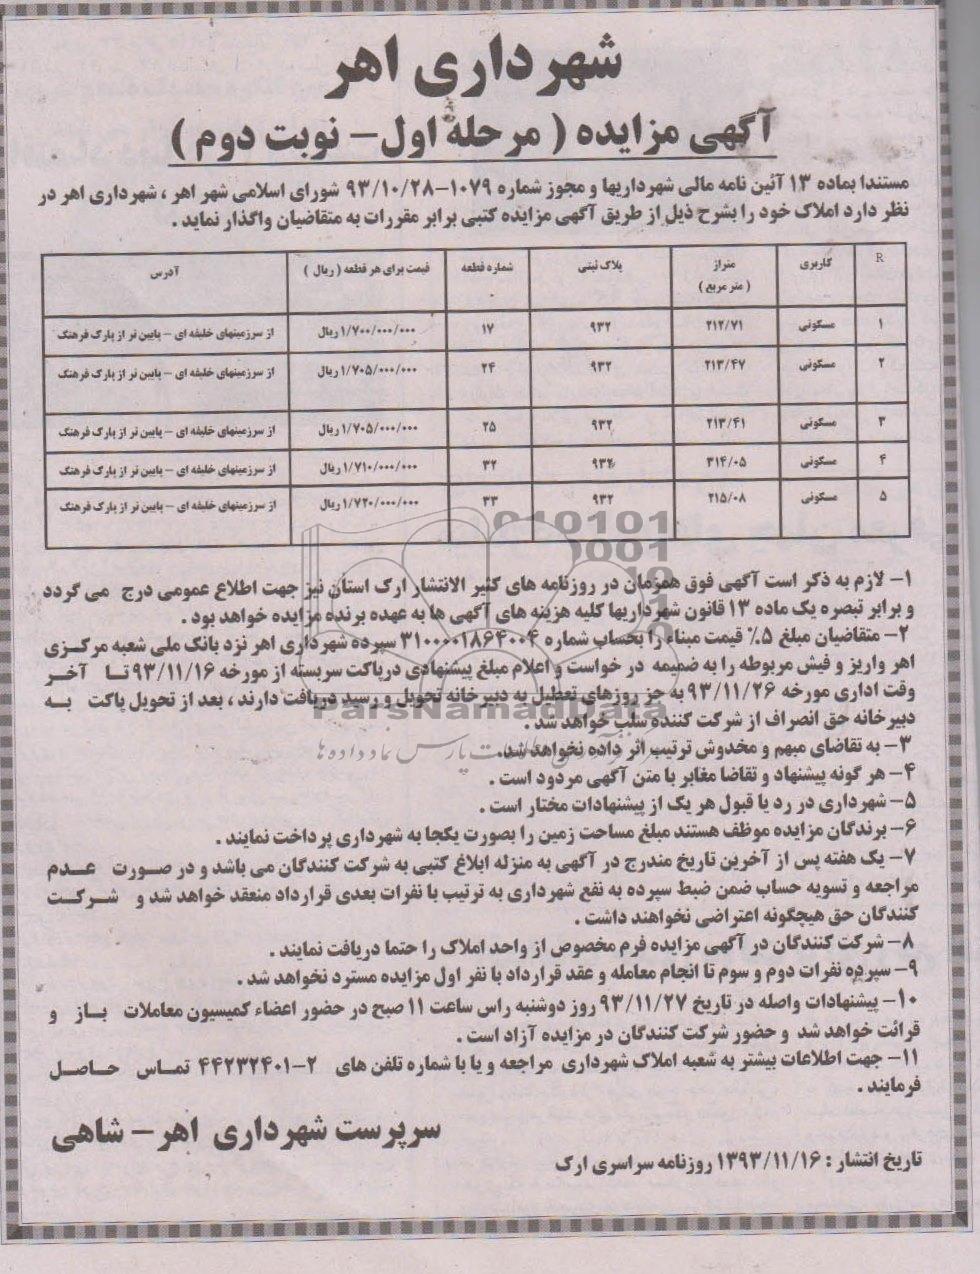 شهرداری اهر
آگهی مزایده ( مرحله اول – نوبت دوم )
مستندا بماده ۱۳ آئین نامه مالی شهرداریها و مجوز شماره ۱۰۷۹-۹۳/۱۰/۲۸ شورای اسلامی شهر اهر ، شهرداری اهر در
نظر دارد املاک خود را بشرح ذیل از طریق آگهی مزایده کتبی برابر مقررات به متقاضیان واگذار نماید .
R کاربری متراژ ( متر مربع ) پلاک ثبتی شماره قطعه قیمت برای هر قطعه ( ریال ) آدرس
۱ مسکونی ۲۱۲/۷۱ ۹۳۲ ۱۷ ۱/۷۰۰/۰۰۰/۰۰۰ ریال از سرزمینهای خلیفه ای – پایین تر از پارک فرهنگ
۲ مسکونی ۲۱۳/۴۷ ۹۳۲ ۲۴ ۱/۷۰۵/۰۰۰/۰۰۰ ریال از سرزمینهای خلیفه ای – پایین تر از پارک فرهنگ
۳ مسکونی ۲۱۳/۴۱ ۹۳۲ ۲۵ ۱/۷۰۵/۰۰۰/۰۰۰ ریال از سرزمینهای خلیفه ای – پایین تر از پارک فرهنگ
۴ مسکونی ۳۱۴/۰۵ ۹۳۲ ۳۲ ۱/۷۱۰/۰۰۰/۰۰۰ ریال از سرزمینهای خلیفه ای – پایین تر از پارک فرهنگ
۵ مسکونی ۲۱۵/۰۸ ۹۳۲ ۳۳ ۱/۷۲۰/۰۰۰/۰۰۰ ریال از سرزمینهای خلیفه ای – پایین تر از پارک فرهنگ
۱- لازم به ذکر است آگهی فوق همزمان در روزنامه های کثیر الانتشار ارک استان نیز جهت اطلاع عمومی درج می گردد
و برابر تبصره یک ماده ۱۳ قانون شهرداریها کلیه هزینه های آگهی ها به عهده برنده مزایده خواهد بود .
۲- متقاضیان مبلغ ۵٪ قیمت مبناء را بحساب شماره ۳۱۰۰۰۰۱۸۶۴۰۰۴ سپرده شهرداری اهر نزد بانک ملی شعبه مرکزی
اهر واریز و فیش مربوطه را به ضمیمه در خواست و اعلام مبلغ پیشنهادی درپاکت سربسته از مورخه ۹۳/۱۱/۱۶ تا آخر
وقت اداری مورخه ۹۳/۱۱/۲۶ به جز روزهای تعطیل به دبیرخانه تحویل و رسید دریافت دارند ، بعد از تحویل پاکت به
دبیرخانه حق انصراف از شرکت کننده سلب خواهد شد .
۳- به تقاضای مبهم و مخدوش ترتیب اثر داده نخواهد شد.
۴- هر گونه پیشنهاد و تقاضا مغایر با متن آگهی مردود است .
۵- شهرداری در رد یا قبول هر یک از پیشنهادات مختار است .
۶- برندگان مزایده موظف هستند مبلغ مساحت زمین را بصورت یکجا به شهرداری پرداخت نمایند .
۷- یک هفته پس از آخرین تاریخ مندرج در آگهی به منزله ابلاغ کتبی به شرکت کنندگان می باشد و در صورت عدم
مراجعه و تسویه حساب ضمن ضبط سپرده به نفع شهرداری به ترتیب با نفرات بعدی قرارداد منعقد خواهد شد و شرکت
کنندگان حق هیچگونه اعتراضی نخواهند داشت .
۸- شرکت کنندگان در آگهی مزایده فرم مخصوص از واحد املاک را حتما دریافت نمایند .
۹- سپرده نفرات دوم و سوم تا انجام معامله و عقد قرارداد با نفر اول مزایده مسترد نخواهد شد .
۱۰- پیشنهادات واصله در تاریخ ۹۳/۱۱/۲۷ روز دوشنبه راس ساعت ۱۱ صبح در حضور اعضاء کمیسیون معاملات باز و
قرائت خواهد شد و حضور شرکت کنندگان در مزایده آزاد است .
۱۱- جهت اطلاعات بیشتر به شعبه املاک شهرداری مراجعه و یا با شماره تلفن های ۲-۴۴۲۳۲۴۰۱ تماس حاصل
فرمایند .
سرپرست شهرداری اهر – شاهی
تاریخ انتشار : ۱۳۹۳/۱۱/۱۶ روزنامه سراسری ارک
ParsNamadData